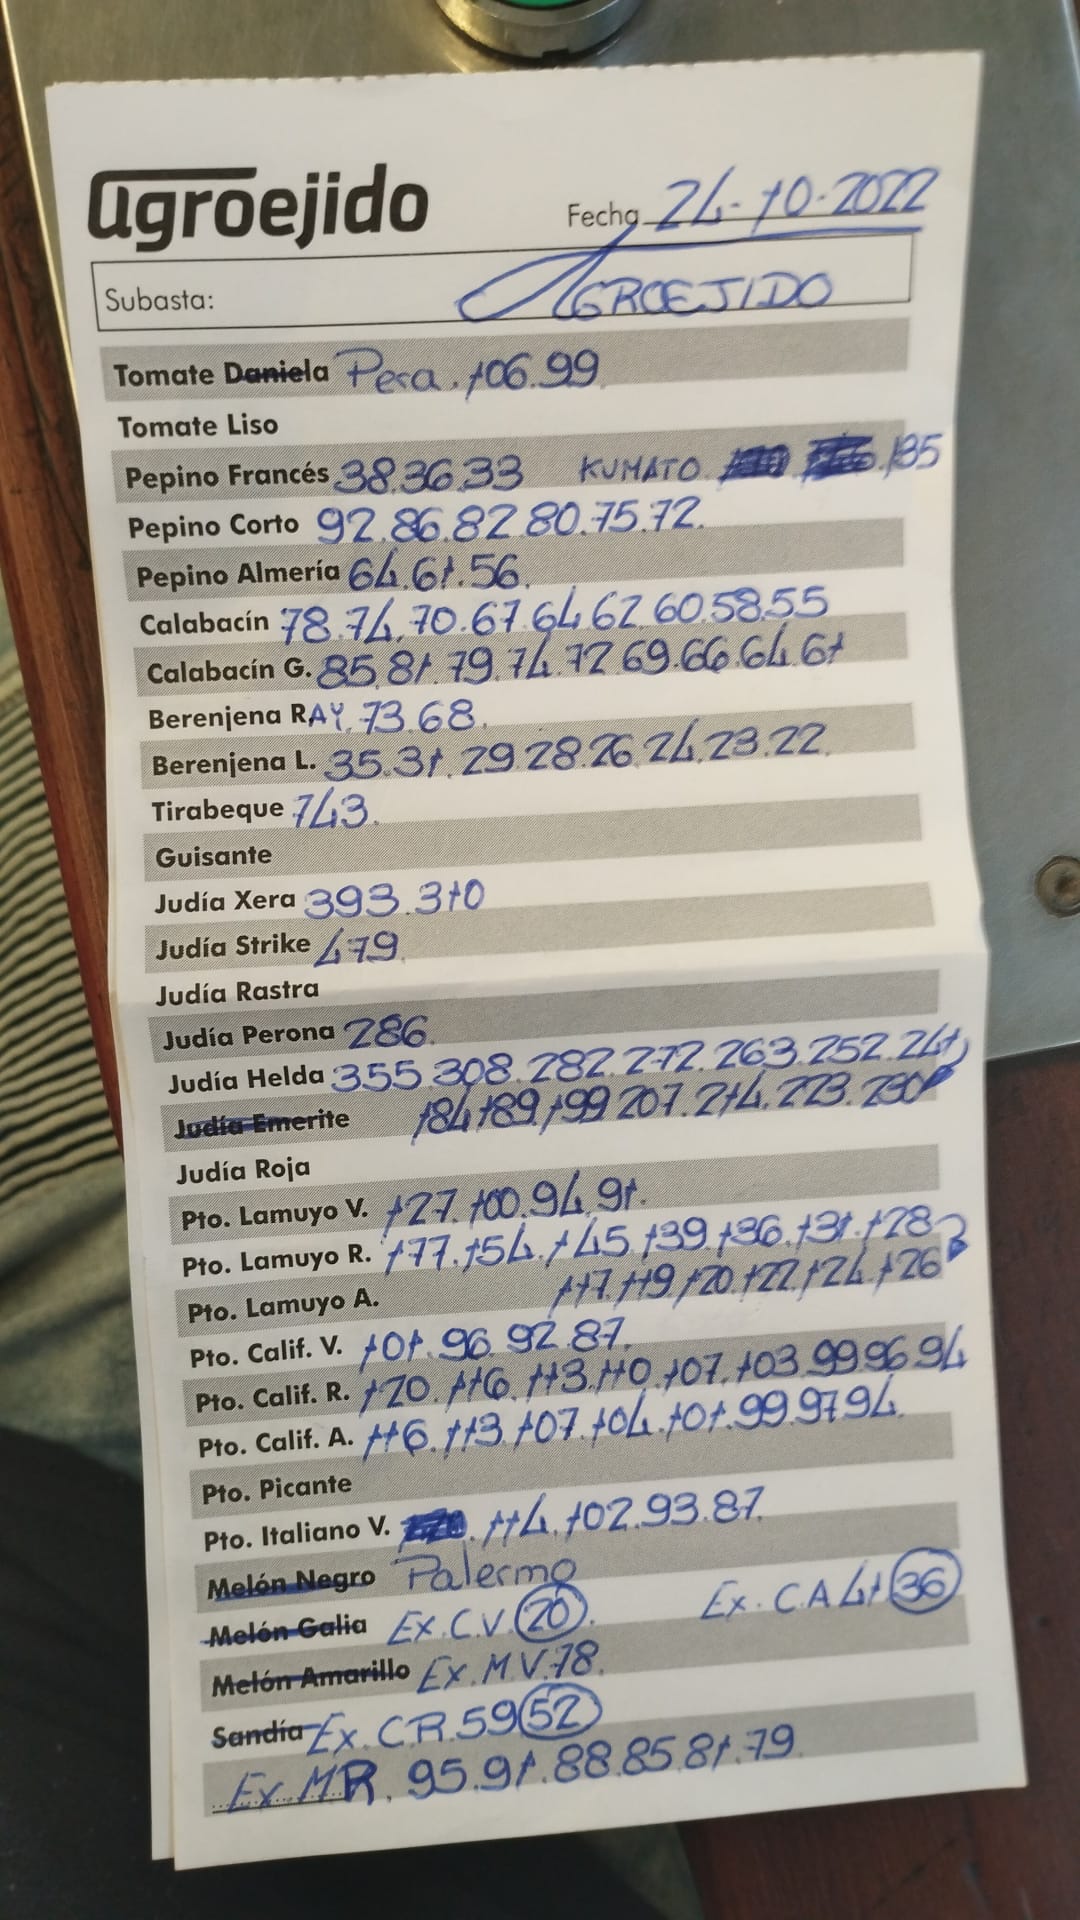 agroejido
Fecha 24-10-2022
Subasta: AGROEJIDO
Tomate Daniela Pera. 106.99
Tomate Liso
Pepino Francés 38.36.33 KUMATO. 135
Pepino Corto 92.86.82.80.75.72.
Pepino Almería 64.61.56.
Calabacín 78.74.70.67.64.62.60.58.55
Calabacín G. 85.81.79.74.72.69.66.64.61
Berenjena RAY. 73.68.
Berenjena L. 35.31.29.28.26.24.23.22.
Tirabeque 743.
Guisante
Judía Xera 393.310
Judía Strike 479.
Judía Rastra
Judía Perona 286.
Judía Helda 355.308.282.272.263.252.241
Judía Emerite 184.189.199.207.214.223.230
Judía Roja
Pto. Lamuyo V. 127.100.94.91.
Pto. Lamuyo R. 177.154.145.139.136.131.128
Pto. Lamuyo A. 117.119.120.122.124.126
Pto. Calif. V. 101.96.92.87.
Pto. Calif. R. 120.116.113.110.107.103.99.96.94
Pto. Calif. A. 116.113.107.104.101.99.97.94.
Pto. Picante
Pto. Italiano V. 114.102.93.87.
Melón Negro Palermo
Melón Galia Ex.C.V. 20. Ex.C.A 41 36
Melón Amarillo Ex.M.V.78.
Sandía Ex.C.R.59 52
Ex.MR. 95.91.88.85.81.79.